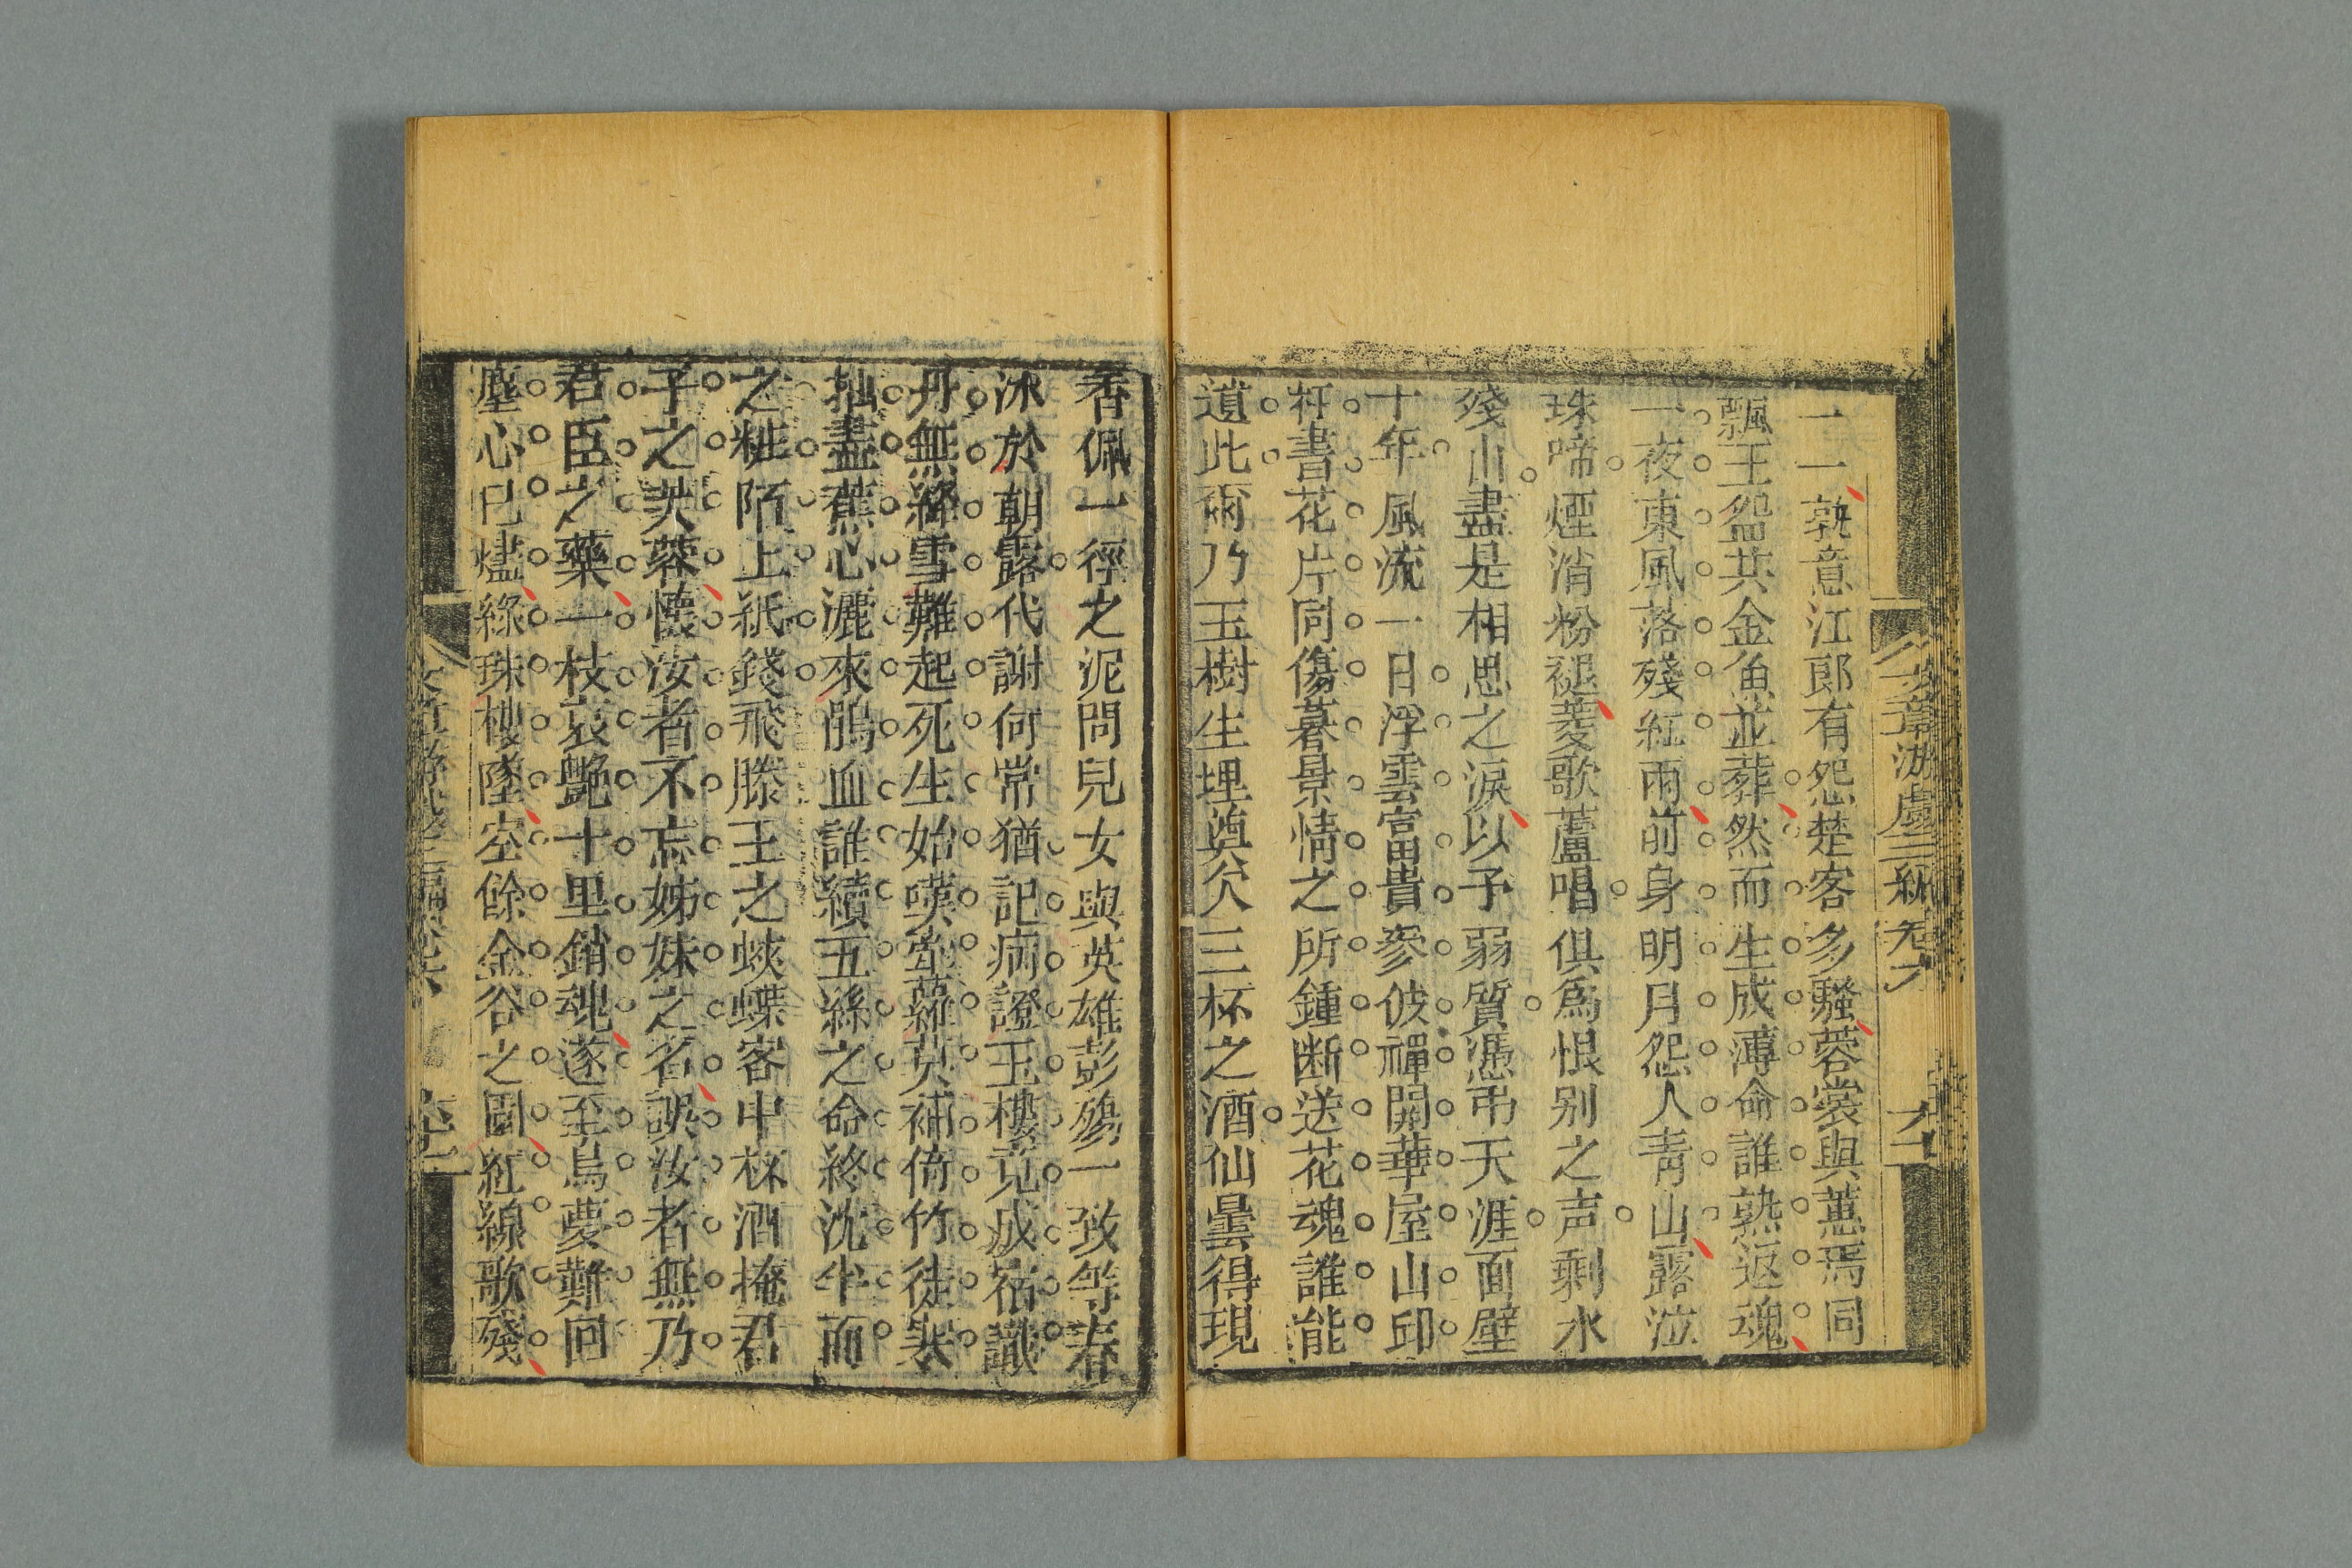 一一孰意江郎有怨楚客多騷蓉裳與蕙焉同
飄玉盌共金魚並葬然而生成薄命誰熱返魂
一夜東風落殘紅雨前身明月怨人青山露泣
珠啼煙消粉褪菱歌蘆唱俱爲恨别之声剩水
殘山盡是相思之淚以予弱質憑弔天涯面壁
十年風流一日浮雲富貴參彼禪開華屋山邱
杆書花片同傷暮景情之所鍾断送花魂誰能
遣此爾乃玉樹生埋奠公三杯之酒仙曇得現
香佩一徑之泥問兒女與英雄彭殤一致等春
沐於朝露代謝何常猶記病證玉樓竟成宿識
丹無絳雪難起死生始嘆牽蘿莫補倚竹徒寒
拙盡蕉心灑來鵑血誰續五絲之命終沈半面
之粧陌上紙錢飛滕王之蛺蝶客中杯酒掩君
子之芙蓉懷汝者不忘姊妹之名誤汝者無乃
君臣之藥一枝哀艷十里銷魂遂至烏夔難回
塵心已燼綠珠樓墜空餘金谷之園紅線歌殘